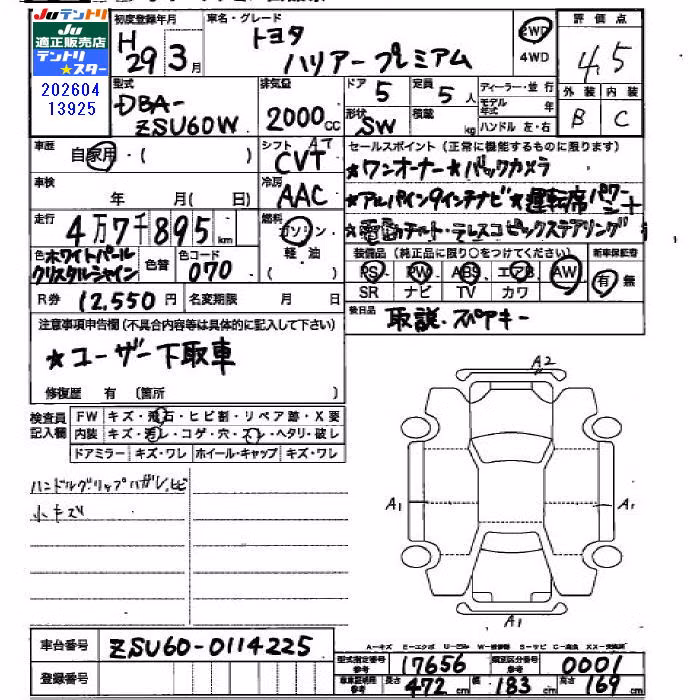 JUテントリ
JU
適正販売店
テントリ
★スター
202604
13925
初度登録年月
H29 3月
車名・グレード
トヨタ
ハリアー プレミアム
2WD
4WD
評価点
4.5
外装 内装
B C
型式
DBA-
ZSU60W
排気量
2000cc
ドア 5
定員 5人
形状 SW
積載 kg
ディーラー・並行
モデル年式 年
ハンドル 左・右
車歴
自家用・( )
シフト AT
CVT
セールスポイント(正常に機能するものに限ります)
★ワンオーナー★バックカメラ
★アルパイン9インチナビ★運転席パワーシート
★電動チルト・テレスコピックステアリング
車検
年 月( 日)
冷房
AAC
走行
4万7千895km
燃料
ガソリン
軽・油
色 ホワイトパール
クリスタルシャイン
色替
色コード
070
装備品(純正品に限り○をつけてください)
PS PW ABS エアB AW
SR ナビ TV カワ
新車保証書
有 無
R券 12,550円
名変期限 月 日
後日品
取説・スペアキー
注意事項申告欄(不具合内容等は具体的に記入して下さい)
★ユーザー下取車
修復歴 有 (箇所 )
検査員
記入欄
FW キズ・飛石・ヒビ割・リペア跡・X要
内装 キズ・汚レ・コゲ・穴・スレ・ヘタリ・破レ
ドアミラー キズ・ワレ ホイール・キャップ キズ・ワレ
ハンドルグリップハガレ、ヒビ
小キズ
A2
A1
A1
A1
車台番号
ZSU60-0114225
登録番号
型式指定番号
参考
17656
類別区分番号
参考
0001
車車証明記載
参考
長さ 472cm
幅 183cm
高さ 169cm